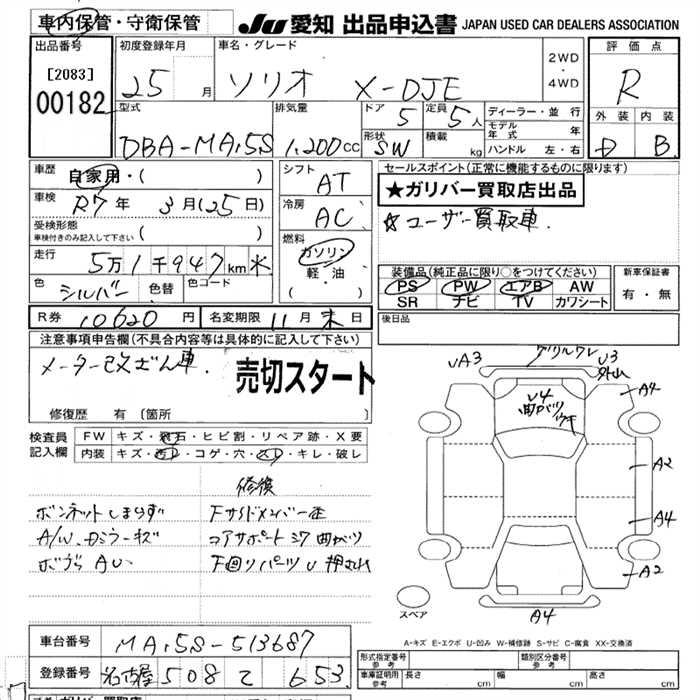 車内保管・守衛保管
JU 愛知 出品申込書 JAPAN USED CAR DEALERS ASSOCIATION
出品番号 [2083] 00182
初度登録年月 25 月
車名・グレード ソリオ X-DJE
2WD・4WD
評価点 R
外装 D 内装 B
型式 DBA-MA15S
排気量 1,200cc
ドア 5
定員 5人
形状 SW
積載 kg
ディーラー・並行
モデル年式 年
ハンドル 左・右
車歴 自家用・( )
車検 R7年 3月(25日)
受検形態 車検付きのみ記入して下さい ( )
走行 5万1千947km
色 シルバー 色替 色コード
シフト AT
冷房 AC
燃料 ガソリン 軽・油 ・( )
セールスポイント(正常に機能するものに限ります)
★ガリバー買取店出品
☆ユーザー買取車.
装備品(純正品に限り○をつけてください)
PS PW エアB AW
SR ナビ TV カワシート
新車保証書 有・無
R券 10620円 名変期限 11月末日
後日品
注意事項申告欄(不具合内容等は具体的に記入して下さい)
メーター改ざん車.
売切スタート
修復歴 有 [箇所 ]
検査員記入欄
FW キズ・飛石・ヒビ割・リペア跡・X要
内装 キズ・コゲ・穴・キレ・破レ
修復
ボンネットしまらず
A/W.Dミラーキズ
コアサポート
曲がり
UA3
U3
U4
A4
A2
A4
A2
A4
スペア
A-キズ E-エクボ U-凹み W-補修跡 S-サビ C-腐食 XX-交換済
車台番号 MA15S-513687
登録番号 名古屋 508 て 653
形式指定番号 参考
類別区分番号 参考
車庫証明用 参考 長さ cm 幅 cm 高さ cm